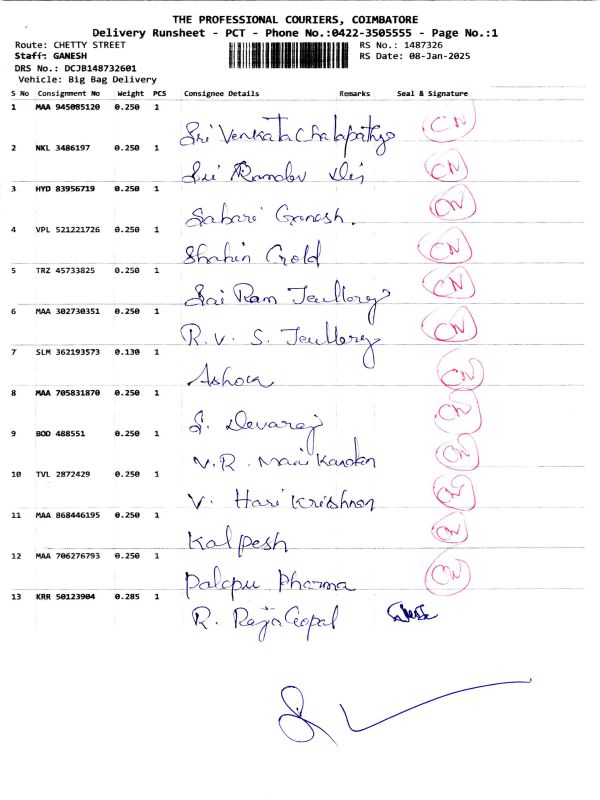 THE PROFESSIONAL COURIERS, COIMBATORE
Delivery Runsheet - PCT - Phone No.:0422-3505555 - Page No.:1
Route: CHETTY STREET RS No.: 1487326
Staff: GANESH RS Date: 08-Jan-2025
DRS No.: DCJB148732601
Vehicle: Big Bag Delivery
S No Consignment No Weight PCS Consignee Details Remarks Seal & Signature
1 MAA 945085120 0.250 1
Sri Venkata Chalapathy CN
2 NKL 3486197 0.250 1
Sri Ramdev CN
3 HYD 83956719 0.250 1
Sabari Ganesh. CN
4 VPL 521221726 0.250 1
Shahin Gold CN
5 TRZ 45733825 0.250 1
Sai Ram Jewllery CN
6 MAA 302730351 0.250 1
R. V. S. Jewllery CN
7 SLM 362193573 0.130 1
Ashoca CN
8 MAA 705831870 0.250 1
S. Devaraj CN
9 BOD 488551 0.250 1
V. R. Mani Kandan CN
10 TVL 2872429 0.250 1
V. Hari Krishnan CN
11 MAA 868446195 0.250 1
Kalpesh CN
12 MAA 706276793 0.250 1
Palepu Pharma CN
13 KRR 50123904 0.285 1
R. Raja Gopal